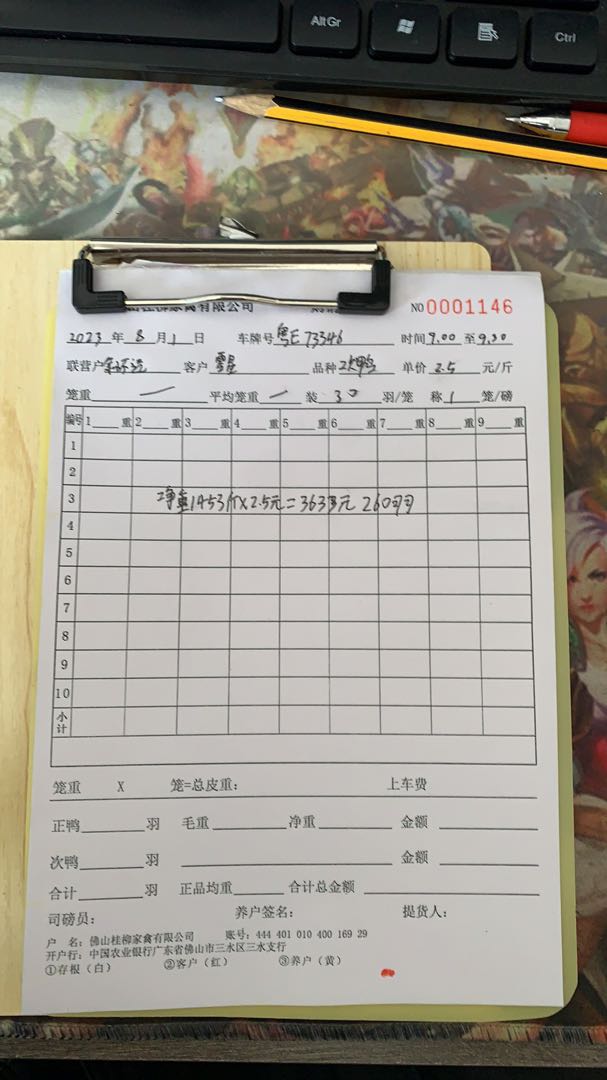 Alt Gr
Ctrl
有限公司
NO 0001146
2023 年 8 月 1 日 车牌号 粤E 73346 时间 9.00 至 9.30
联营户 客户 品种 次鸭 单价 2.5 元/斤
笼重 — 平均笼重 — 装 30 羽/笼 称 1 笼/磅
编号 1 重 2 重 3 重 4 重 5 重 6 重 7 重 8 重 9 重
1
2
3
净重1453斤×2.5元=3633元 260羽
4
5
6
7
8
9
10
小计
笼重 X 笼=总皮重: 上车费
正鸭 羽 毛重 净重 金额
次鸭 羽 金额
合计 羽 正品均重 合计总金额
司磅员: 养户签名: 提货人:
户 名: 佛山桂柳家禽有限公司 账号: 444 401 010 400 169 29
开户行: 中国农业银行广东省佛山市三水区三水支行
①存根（白） ②客户（红） ③养户（黄）